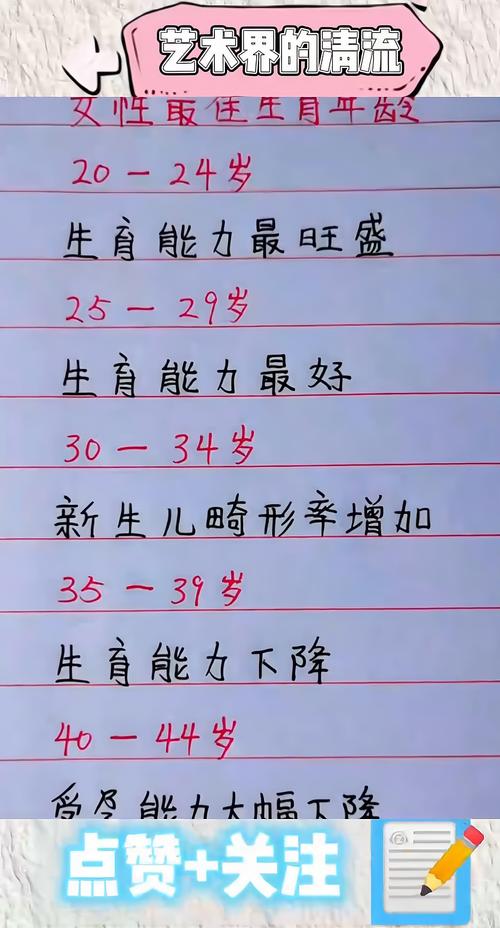 艺术界的清流
女性最佳生育年龄
20－24岁
生育能力最旺盛
25－29岁
生育能力最好
30－34岁
新生儿畸形率增加
35－39岁
生育能力下降
40－44岁
受孕能力大幅下降
点赞+关注